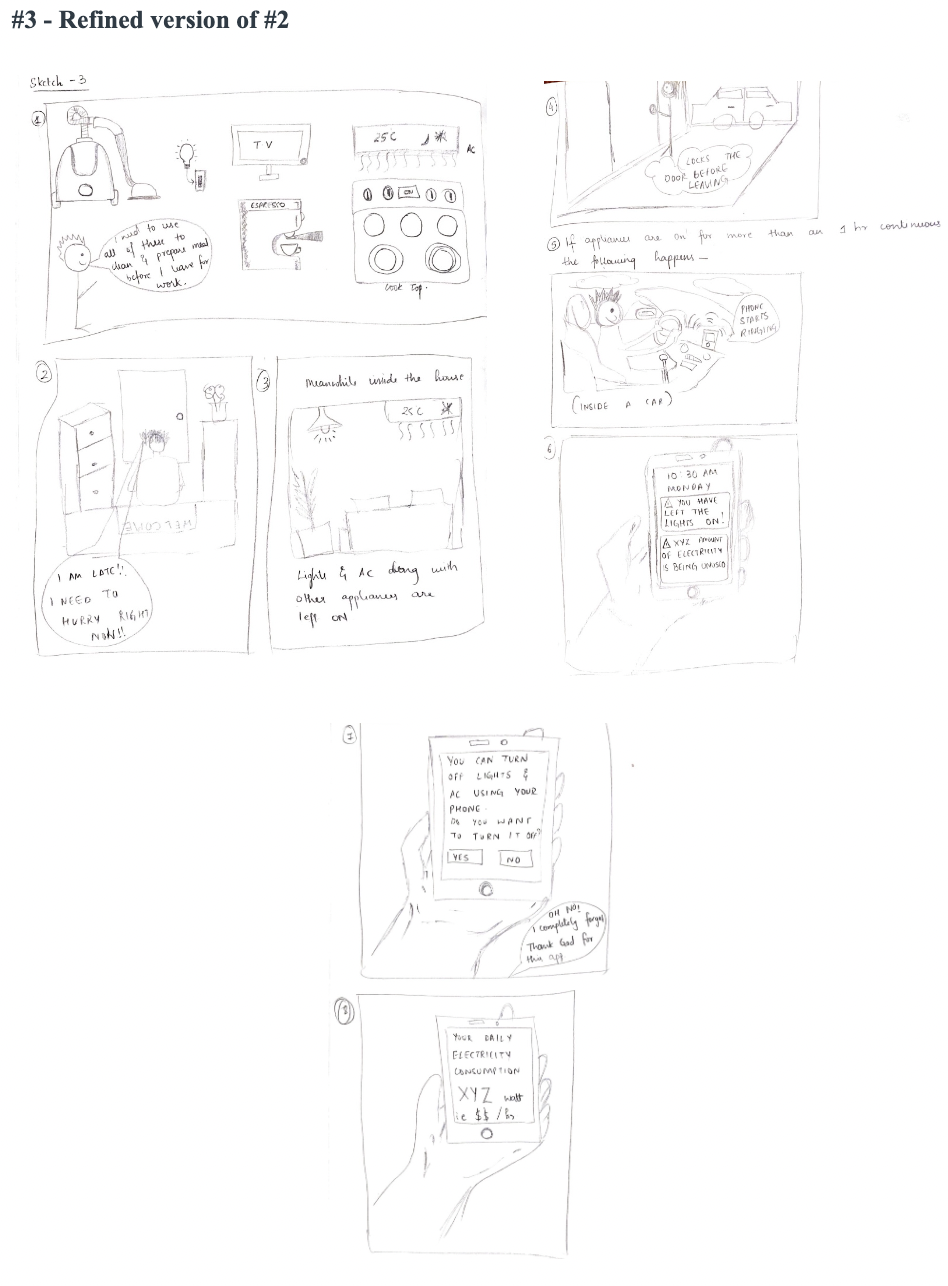 #3 - Refined version of #2
Sketch - 3
1
TV
25C
AC
ESPRESSO
ON
I need to use
all of these to
clean & prepare meal
before I leave for
work.
Cook Top.
2
WELCOME
I AM LATE!!
I NEED TO
HURRY RIGHT
NOW!!
3
Meanwhile inside the house
25C
Lights & AC along with
other appliances are
left on
4
LOCKS THE
DOOR BEFORE
LEAVING
5 If appliances are on for more than an 1 hr continuous
the following happens —
PHONE
STARTS
RINGING
(INSIDE A CAR)
6
10:30 AM
MONDAY
⚠ YOU HAVE
LEFT THE
LIGHTS ON!
⚠ XYZ AMOUNT
OF ELECTRICITY
IS BEING UNUSED
7
YOU CAN TURN
OFF LIGHTS &
AC USING YOUR
PHONE.
DO YOU WANT
TO TURN IT OFF?
YES
NO
OH NO!
I completely forgot
Thank God for
this app
8
YOUR DAILY
ELECTRICITY
CONSUMPTION
XYZ watt
i.e $$ / hr